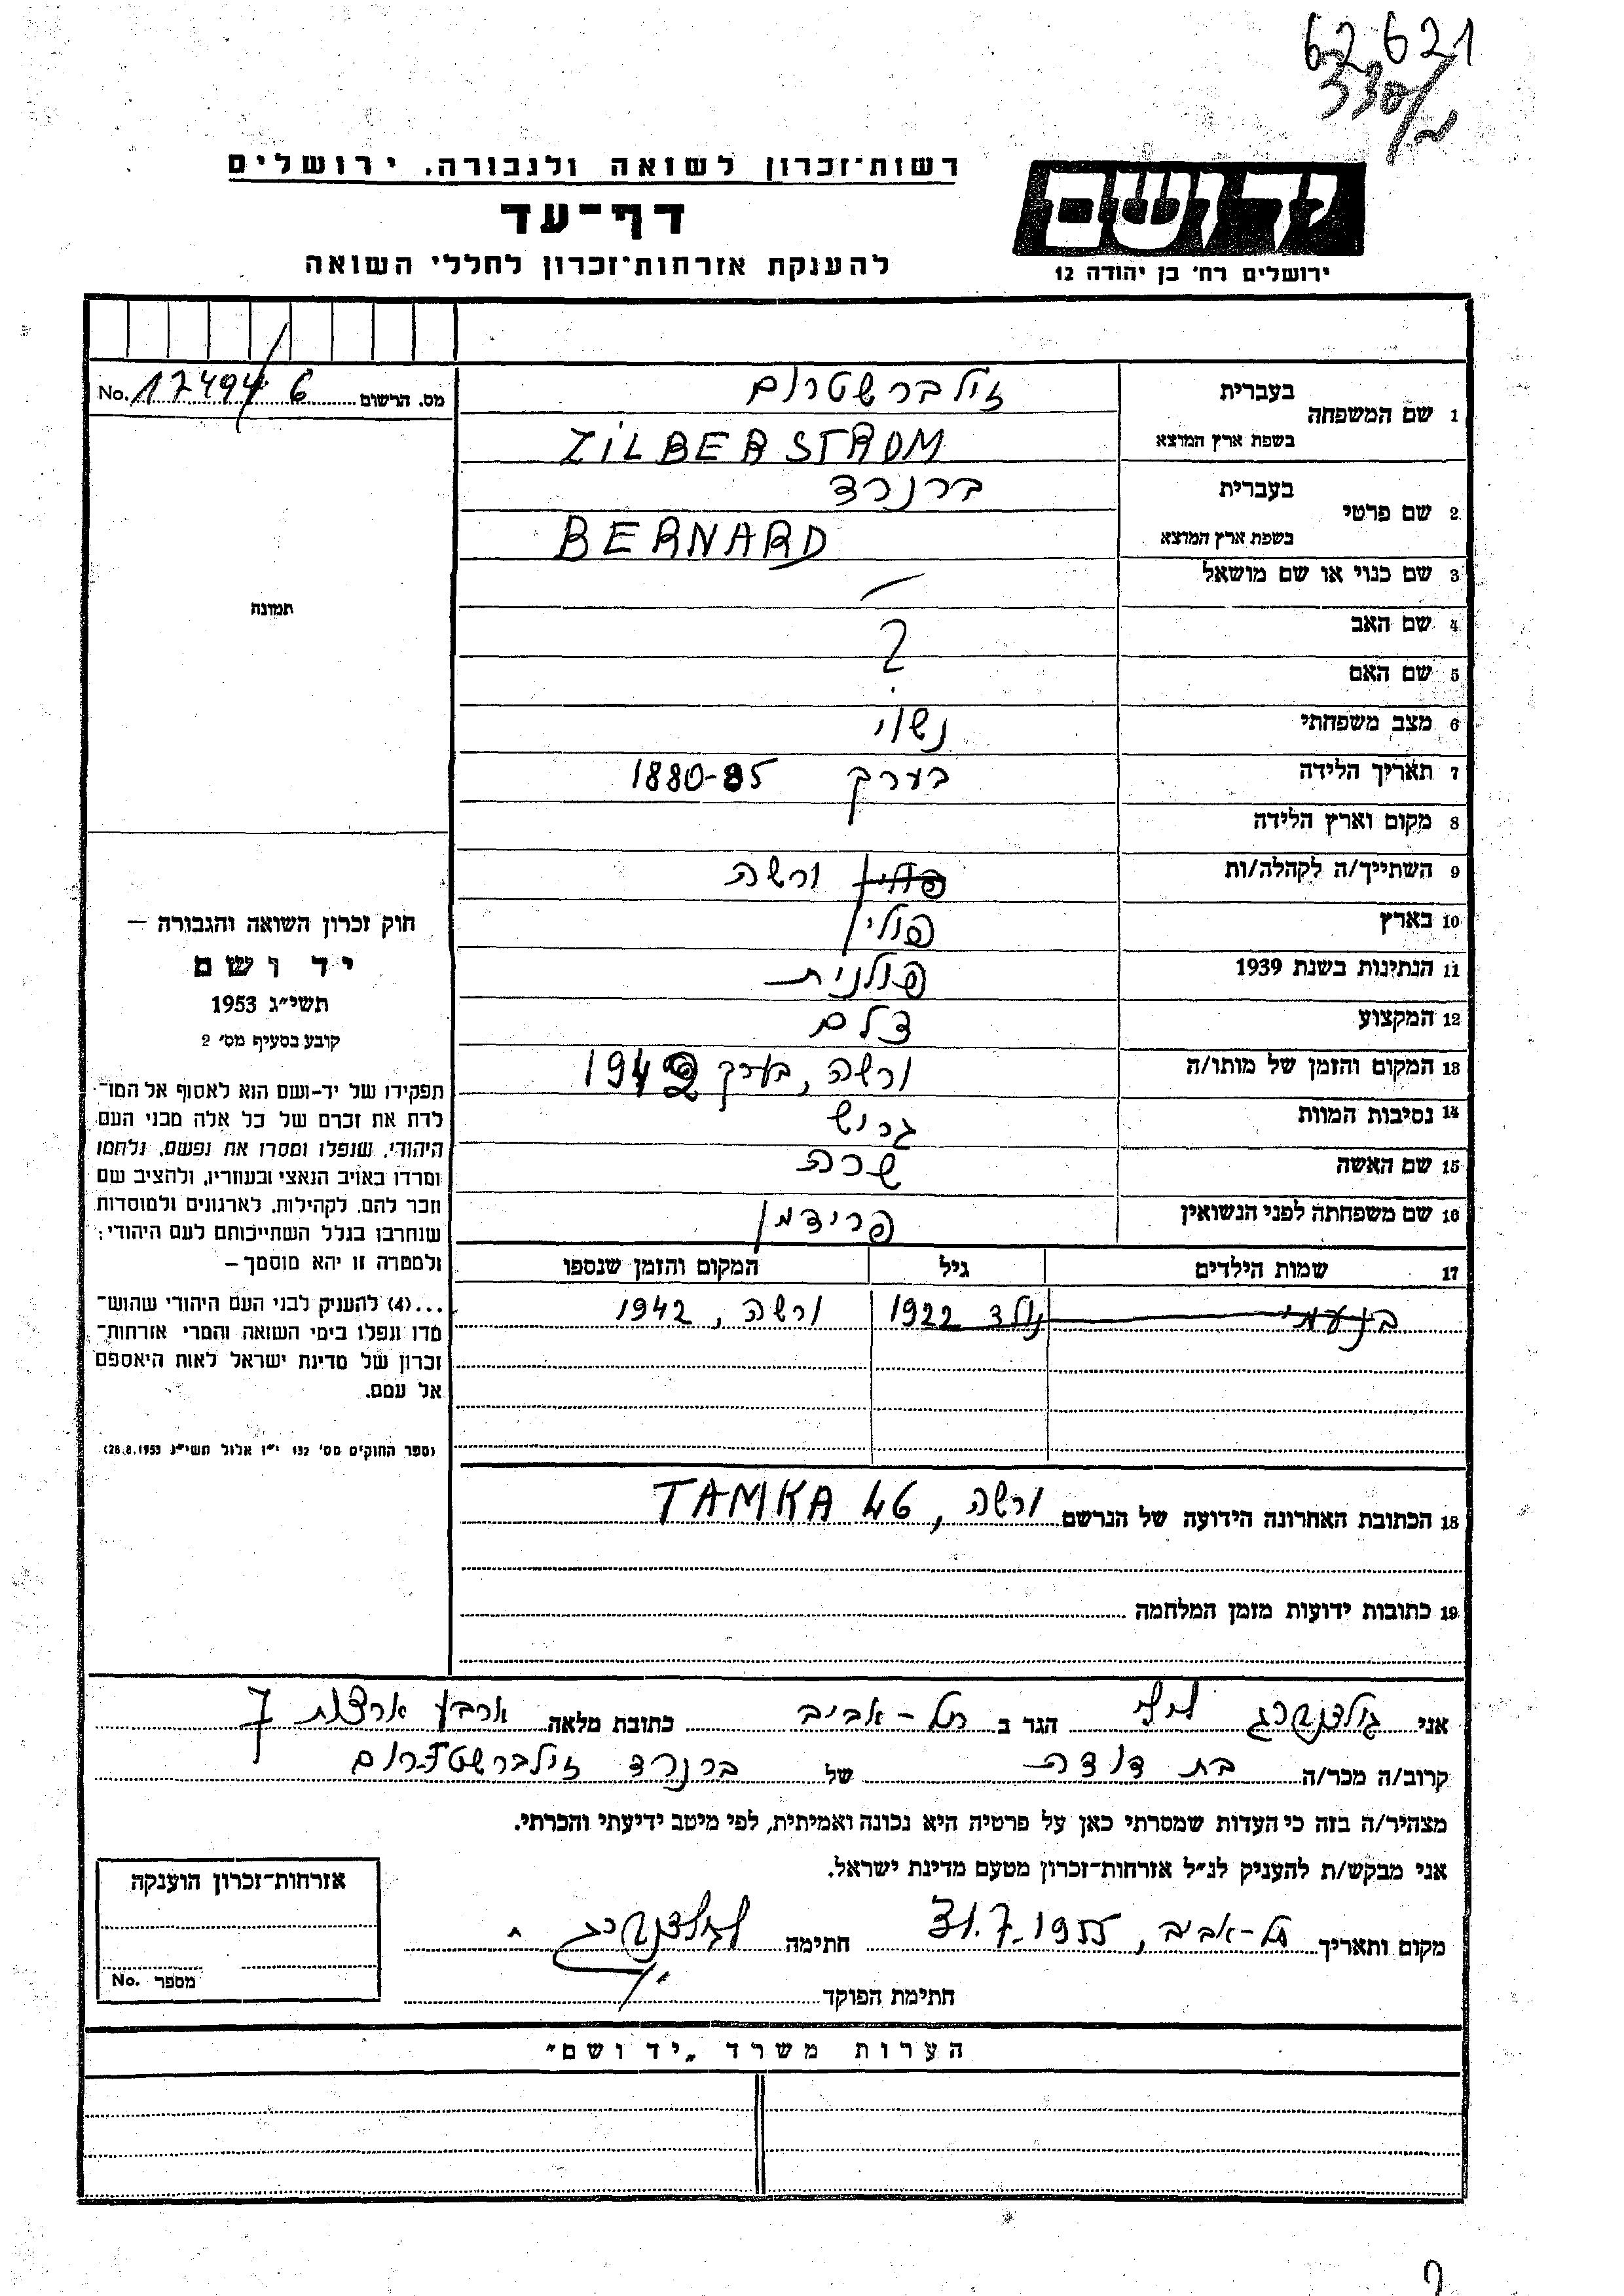 62621
330/
רשות־זכרון לשואה ולגבורה, ירושלים
דף־עד
להענקת אזרחות־זכרון לחללי השואה
יד ושם
ירושלים רח' בן יהודה 12
מס. הרשום 174946 No.
1 שם המשפחה בעברית זילברשטרום
בשפת ארץ המוצא ZILBERSTROM
2 שם פרטי בעברית ברנרד
בשפת ארץ המוצא BERNARD
3 שם כנוי או שם מושאל —
4 שם האב ?
5 שם האם
6 מצב משפחתי נשוי
7 תאריך הלידה בערך 1880-85
8 מקום וארץ הלידה
9 השתייך/ה לקהלה/ות פולין ורשה
10 בארץ פולין
11 הנתינות בשנת 1939 פולנית
12 המקצוע צלם
13 המקום והזמן של מותו/ה ורשה, בערך 1942
14 נסיבות המוות גרוש
15 שם האשה שרה
16 שם משפחתה לפני הנשואין פרידמן
17 שמות הילדים גיל המקום והזמן שנספו
בן עמי נולד 1922 ורשה, 1942
תמונה
חוק זכרון השואה והגבורה —
יד ושם
תשי"ג 1953
קובע בסעיף מס' 2
תפקידו של יד-ושם הוא לאסוף אל המו־
לדת את זכרם של כל אלה מבני העם
היהודי, שנפלו ומסרו את נפשם, נלחמו
ומרדו באויב הנאצי ובעוזריו, ולהציב שם
וזכר להם, לקהילות, לארגונים ולמוסדות
שנחרבו בגלל השתייכותם לעם היהודי;
ולמטרה זו יהא מוסמך —
...(4) להעניק לבני העם היהודי שהוש־
מדו ונפלו בימי השואה והמרי אזרחות־
זכרון של מדינת ישראל לאות היאספם
אל עמם.
(ספר החוקים מס' 132 י"ז אלול תשי"ג 28.8.1953)
18 הכתובת האחרונה הידועה של הנרשם ורשה, TAMKA 46
19 כתובות ידועות מזמן המלחמה
אני גולדנברג הגר ב תל-אביב כתובת מלאה ארבע ארצות 7
קרוב/ה מכר/ה בת דודה של ברנרד זילברשטרום
מצהיר/ה בזה כי העדות שמסרתי כאן על פרטיה היא נכונה ואמיתית, לפי מיטב ידיעתי והכרתי.
אני מבקש/ת להעניק לנ"ל אזרחות־זכרון מטעם מדינת ישראל.
מקום ותאריך תל-אביב, 31.7.1955 חתימה גולדנברג
חתימת הפוקד
אזרחות־זכרון הוענקה
מספר No.
הערות משרד „יד ושם"